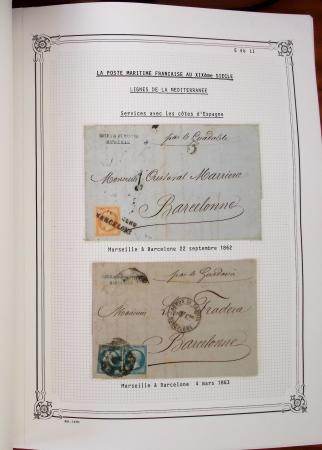 S 46 11
LA POSTE MARITIME FRANÇAISE AU XIXème SIECLE
LIGNES DE LA MEDITERRANEE
Services avec les côtes d'Espagne
MARSEILLE
par le
Monsieur Cristoval Marriera
Barcelonne
BARCELONE
Marseille à Barcelone 22 septembre 1862
par le
Monsieur Tradera
Barcelonne
Marseille à Barcelone 4 mars 1863